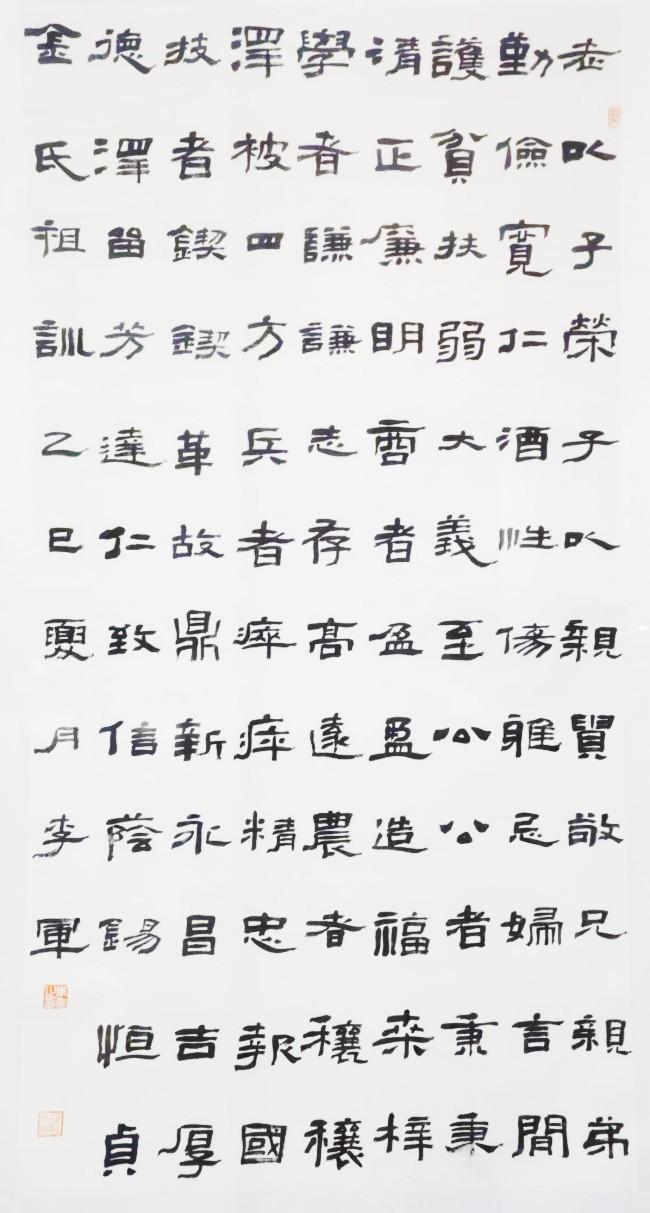 老以子榮子以親賢敬兄親弟
勤儉寬仁酒性傷雅忌婦言閒
護貧扶弱大義至公公者秉秉
清正廉明商者盈盈造福桑梓
學者謙謙志存高遠農者穰穰
澤被四方兵者瘁瘁精忠報國
技者鍥鍥革故鼎新永昌吉厚
德澤留芳達仁致信蔭錫恒貞
金氏祖訓乙巳夏月李軍